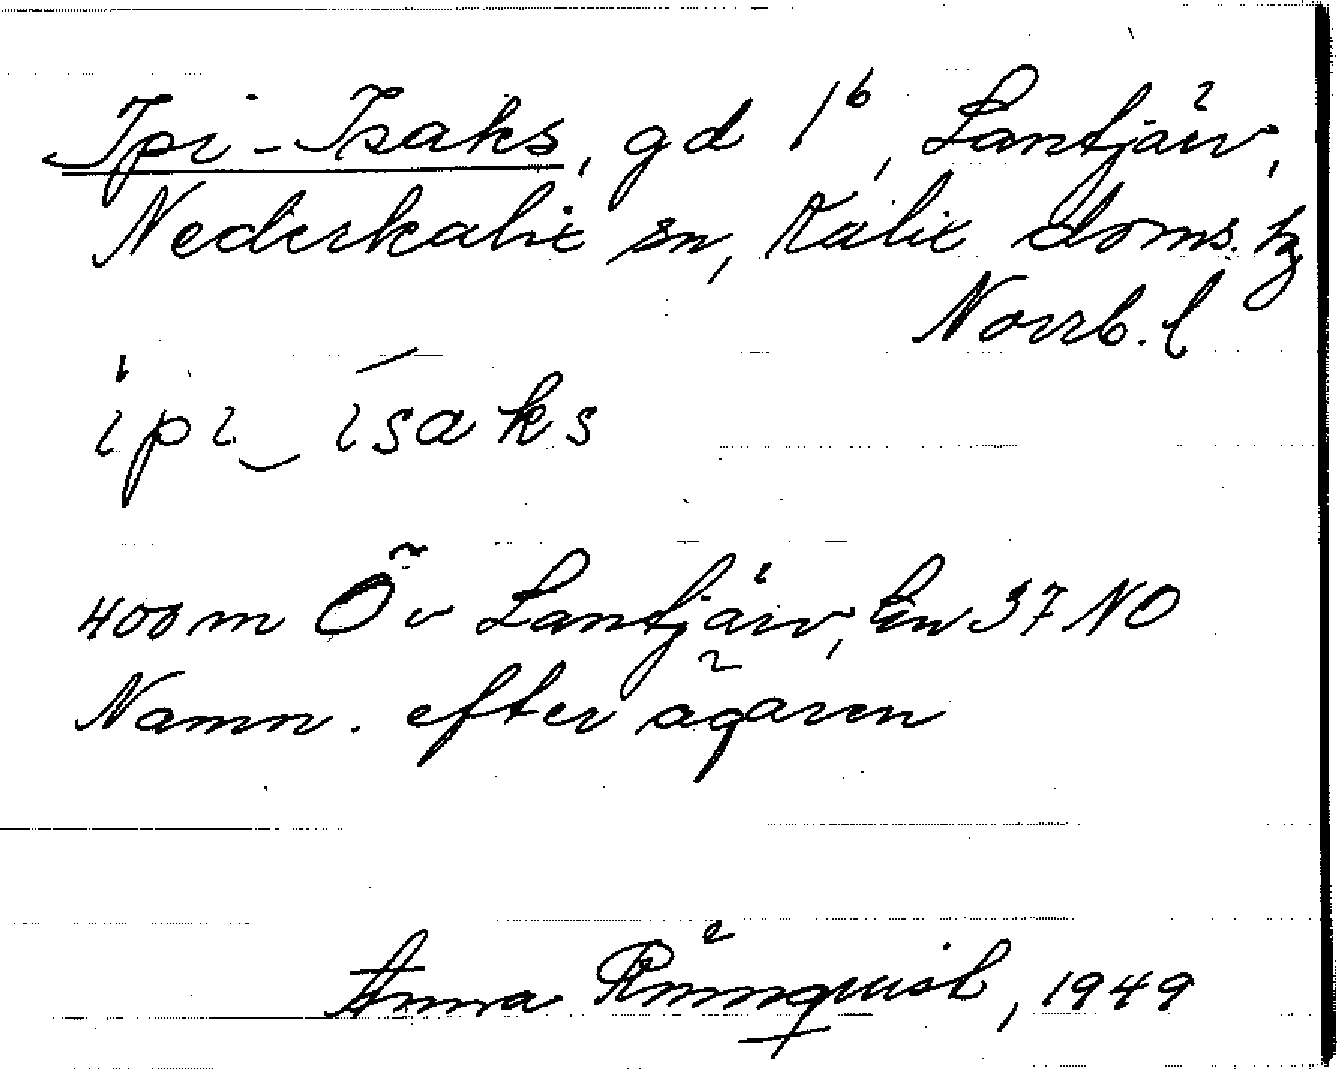 Ipi-Isaks, gd 1⁶, Lantjärv,
Nederkalix sn, Kalix doms. hg
Norrb. l
ipi‿isaks
400 m Ö v Lantjärv, En 37 NO
Namn. efter ägaren
Anna Rönnqvist, 1949